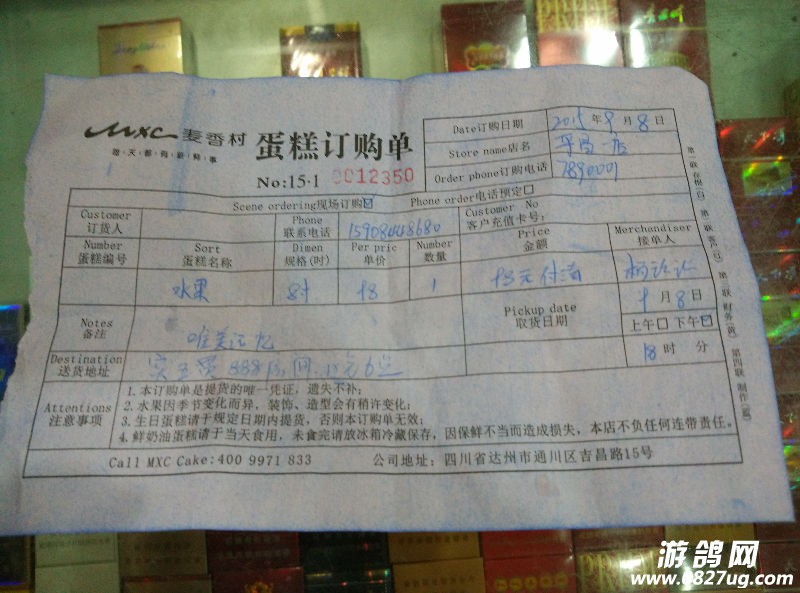 MXC 麦香村
蛋糕订购单
No:15-1 0012350
Date订购日期 2015年9月8日
Store name店名 平昌一店
Order phone订购电话 7890001
Scene ordering现场订购☑ Phone order电话预定□
Customer 订货人
Phone 联系电话 15908448680
Customer No 客户充值卡号:
Number 蛋糕编号
Sort 蛋糕名称
Dimen 规格(吋)
Per pric 单价
Number 数量
Price 金额
Merchandiser 接单人
水果 8吋 98 1 98元付清
Notes 备注
唯美记忆
Pickup date 取货日期
9月8日
上午□ 下午☑
18时 分
Destination 送货地址
888房间
Attentions 注意事项
1.本订购单是提货的唯一凭证，遗失不补;
2.水果因季节变化而异，装饰、造型会有稍许变化;
3.生日蛋糕请于规定日期内提货，否则本订购单无效;
4.鲜奶油蛋糕请于当天食用，未食完请放冰箱冷藏保存，因保鲜不当而造成损失，本店不负任何连带责任。
Call MXC Cake:400 9971 833 公司地址:四川省达州市通川区吉昌路15号
游鸽网
www.0827ug.com